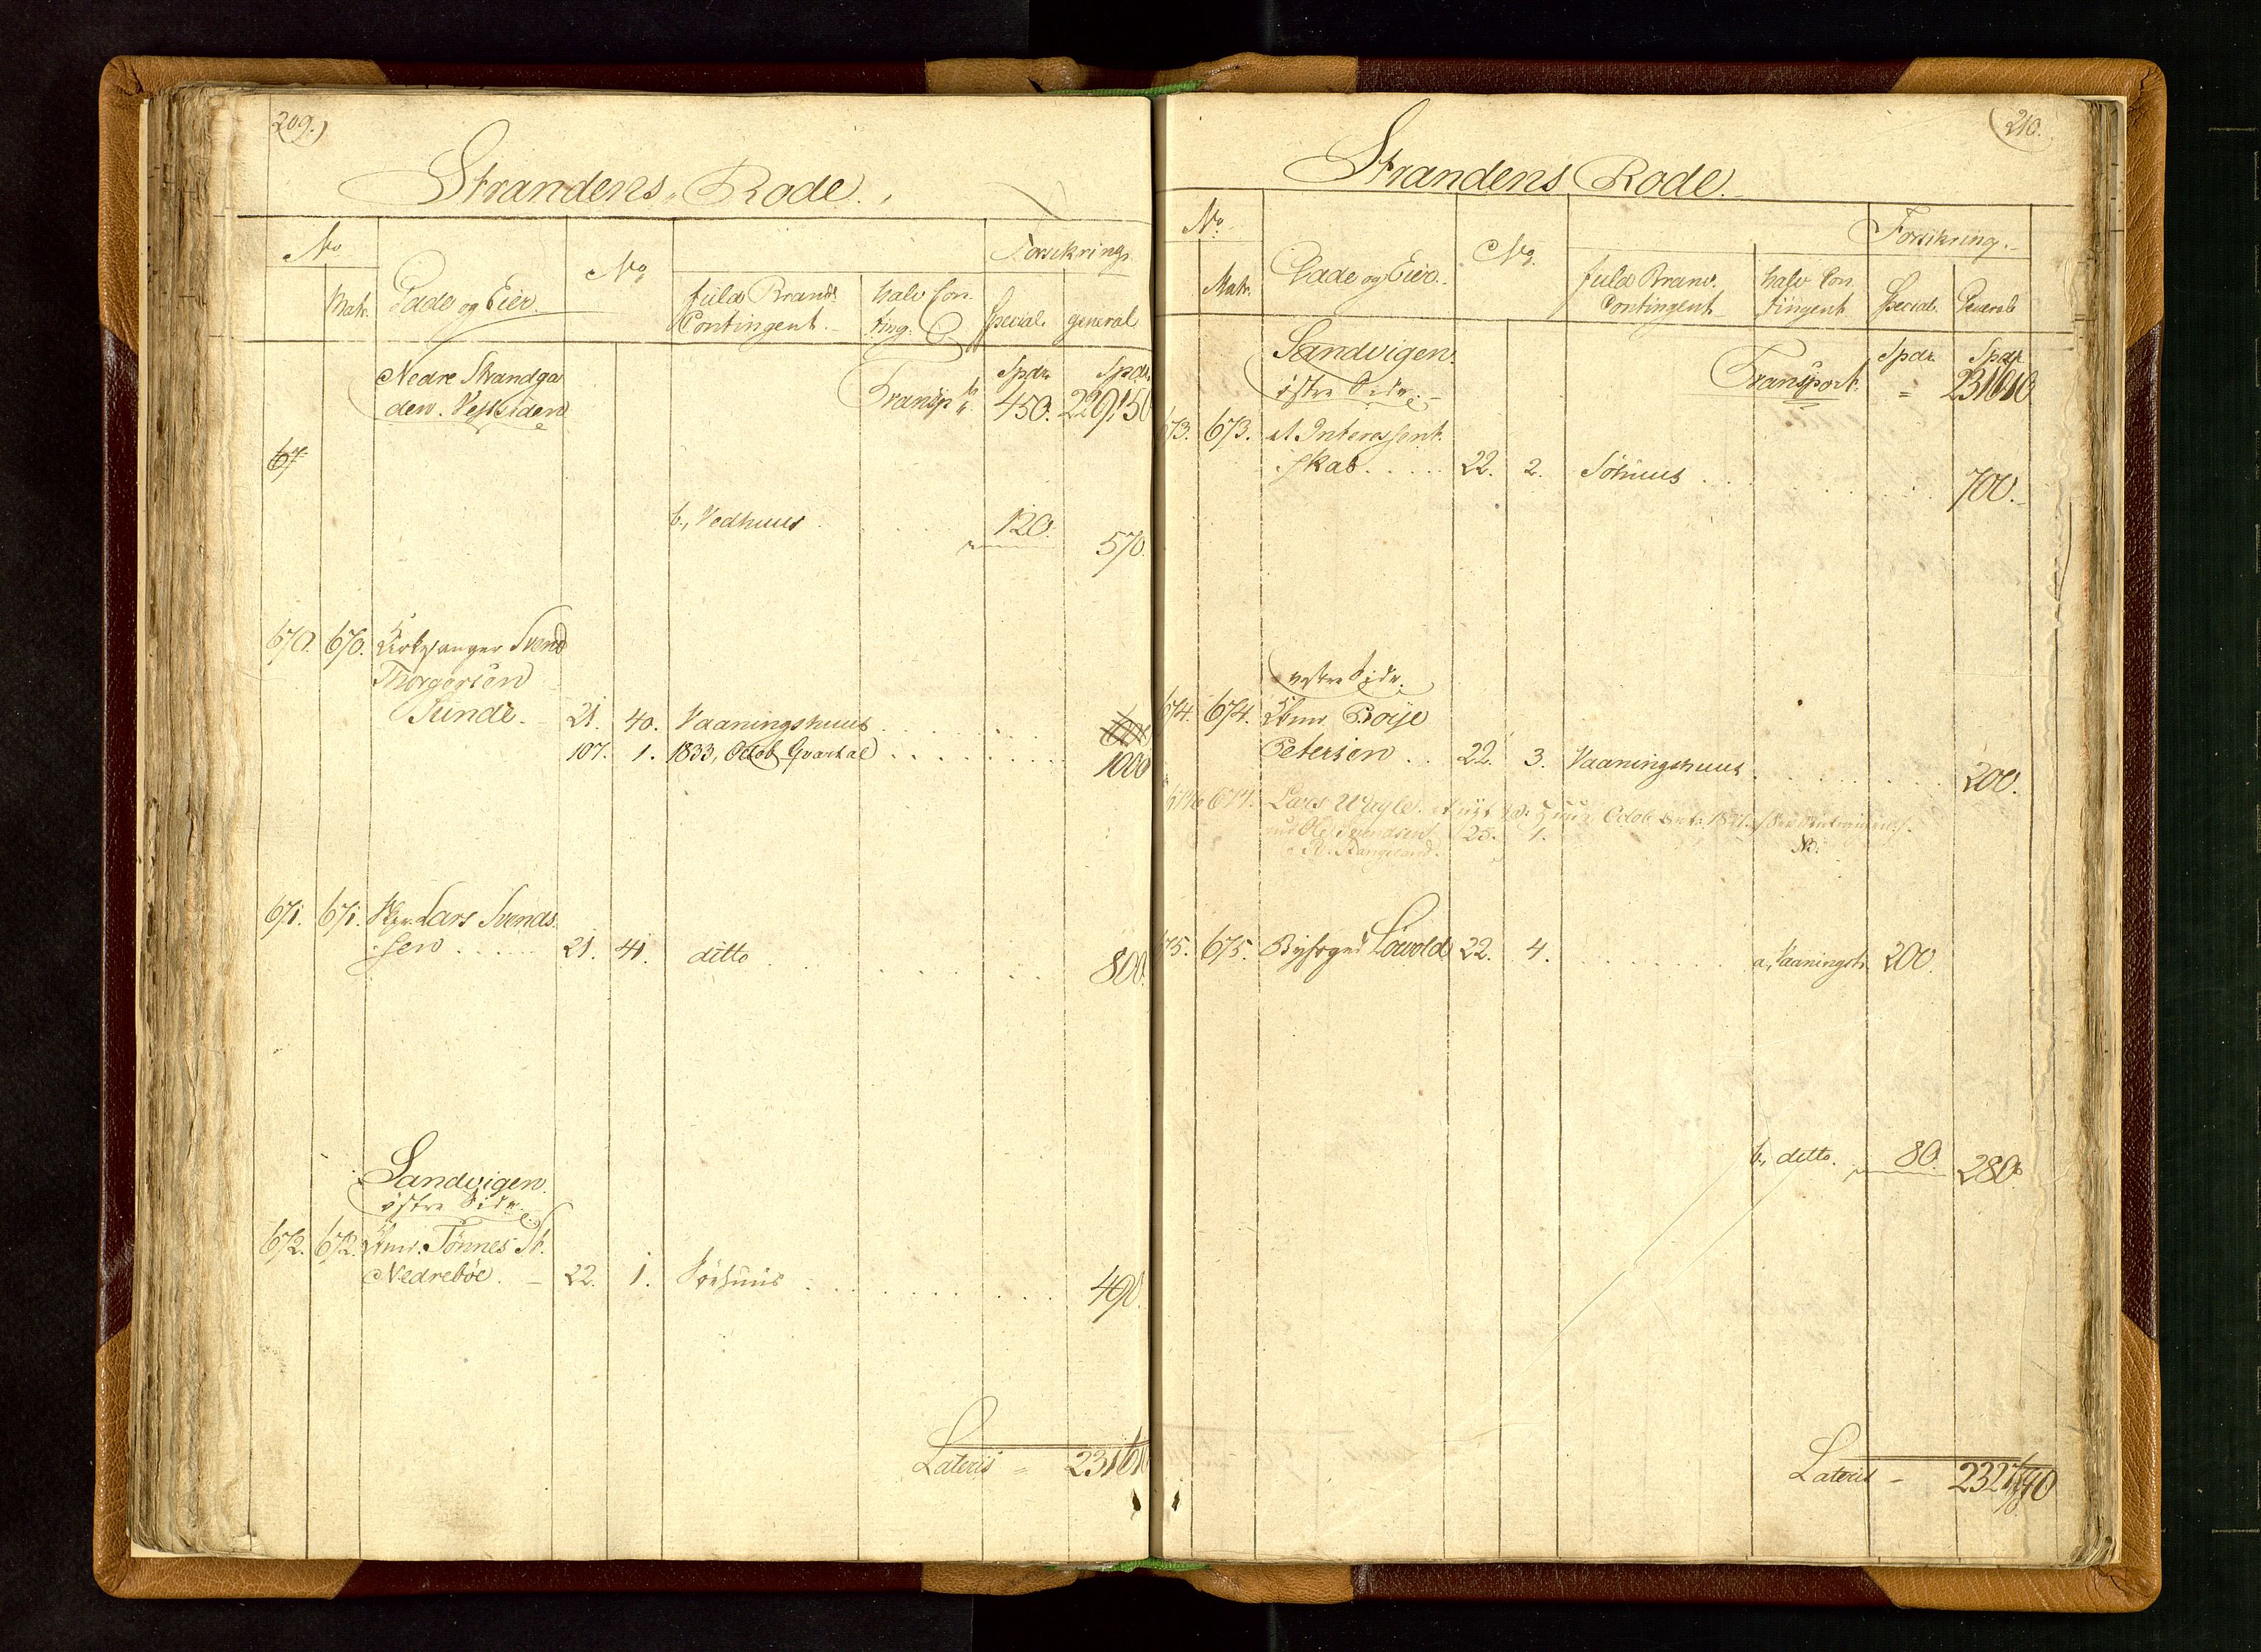 209.)
Strandens Rode.
No
Matr.
Gade og Eier.
No
fuld Brand
Contingent.
halv Con
ting.
Forsikring
Special. general
Nedre Strandga
den. Vestsiden
Transp
Spdr. Spdr.
450. 229,150
67
b., Vedhuus . . . . 120.
570.
670. 670. Kirkesanger Svend
Thorgersen
Sunde. 21. 40. Vaaningshuus . . . . .
107. 1. 1833, Octob. Qvartal . . . . . 1000
671. 671. Lars Svends
sen . . . . . 21. 41. ditto . . . . . 800.
Sandvigen.
östre Side.
672. 672. Tönnes
Nedreböe. 22. 1. Söehuus . . . . . 490.
Lateris = 231610
210.
Strandens Rode.
No.
Matr.
Gade og Eier.
No.
fuld Brand.
Contingent
halv Con
tingent
Forsikring.
Special. General
Sandvigen.
östre Side.
Transport.
Spdr. Spdr.
= 231610
673. 673. et Interessent
skab . . . . 22. 2. Söhuus . . . . . 700.
vestre Side.
674. 674. Boije
Petersen . . 22. 3. Vaaningshuus . . . . . 200.
674. Lars Octob
Ole Svendsen 25. 1.
NB.
675. 675. Byfoged Löwold 22. 4. . . . . . a, Vaaningsh. 200.
b., ditto. 80. 280.
Lateris - 232790